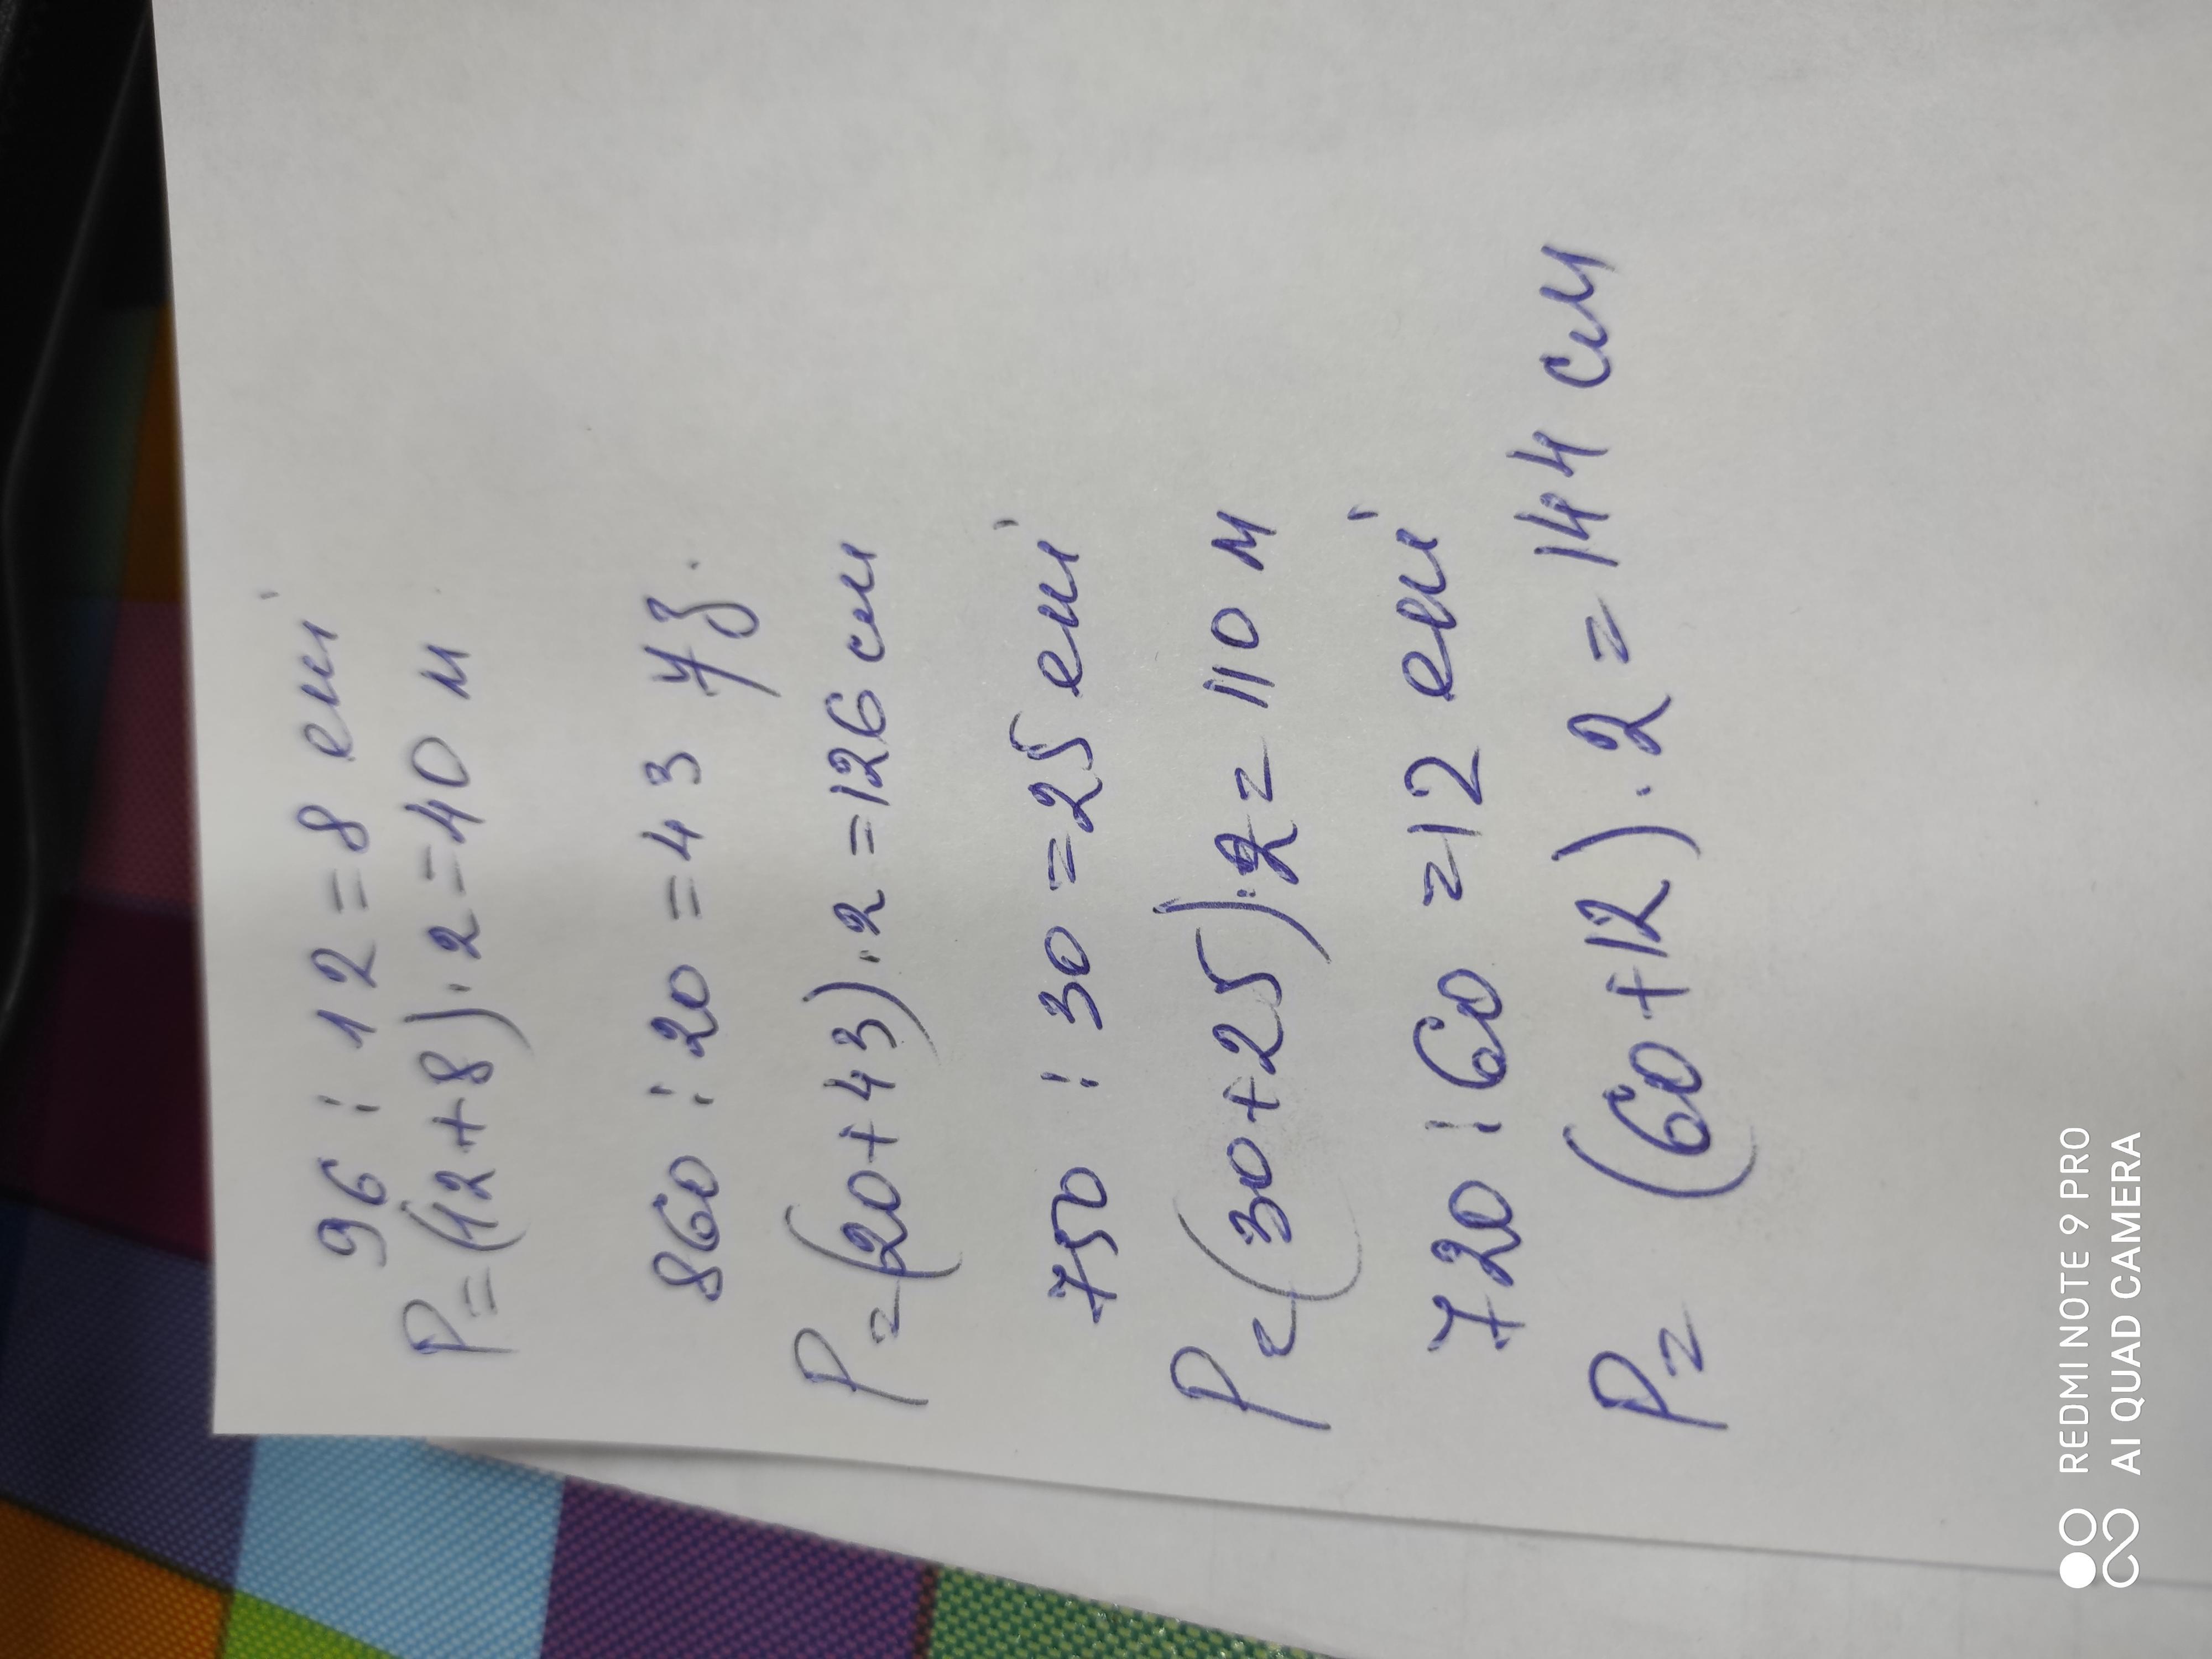 96 : 12 = 8 ені
P=(12+8)·2=40 м
860 : 20 = 43 ұз.
P=(20+43)·2=126 см
750 : 30 = 25 ені
P=(30+25)·2= 110 м
720 : 60 =12 ені
P= (60+12)·2=144 см
REDMI NOTE 9 PRO
AI QUAD CAMERA